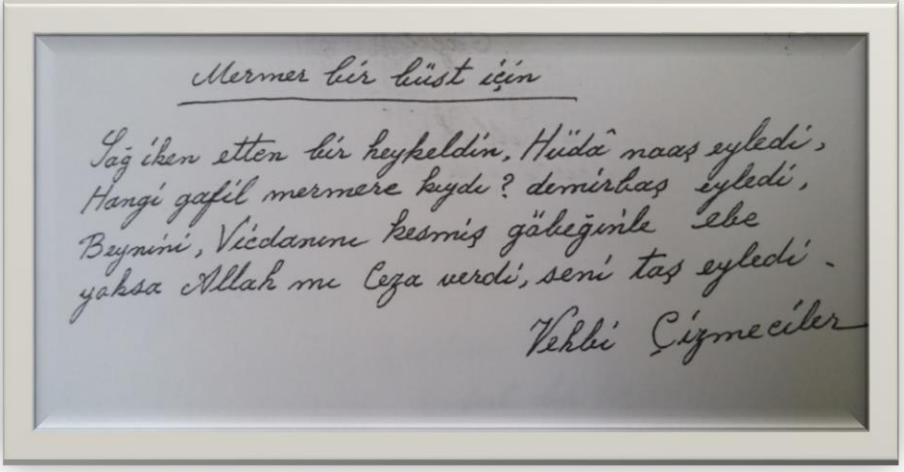 Mermer bir büst için
Sağ iken etten bir heykeldin, Hüdâ naaş eyledi,
Hangi gafil mermere kıydı? demirbaş eyledi,
Beynini, Vicdanını kesmiş göbeğinle ebe
yoksa Allah mı Ceza verdi, seni taş eyledi.
Vehbi Çizmeciler